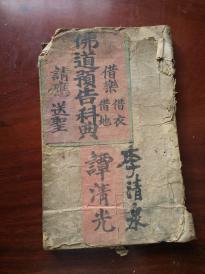 佛道預告科典
借樂 借衣
借地
請應 送聖
譚清光
李清泉